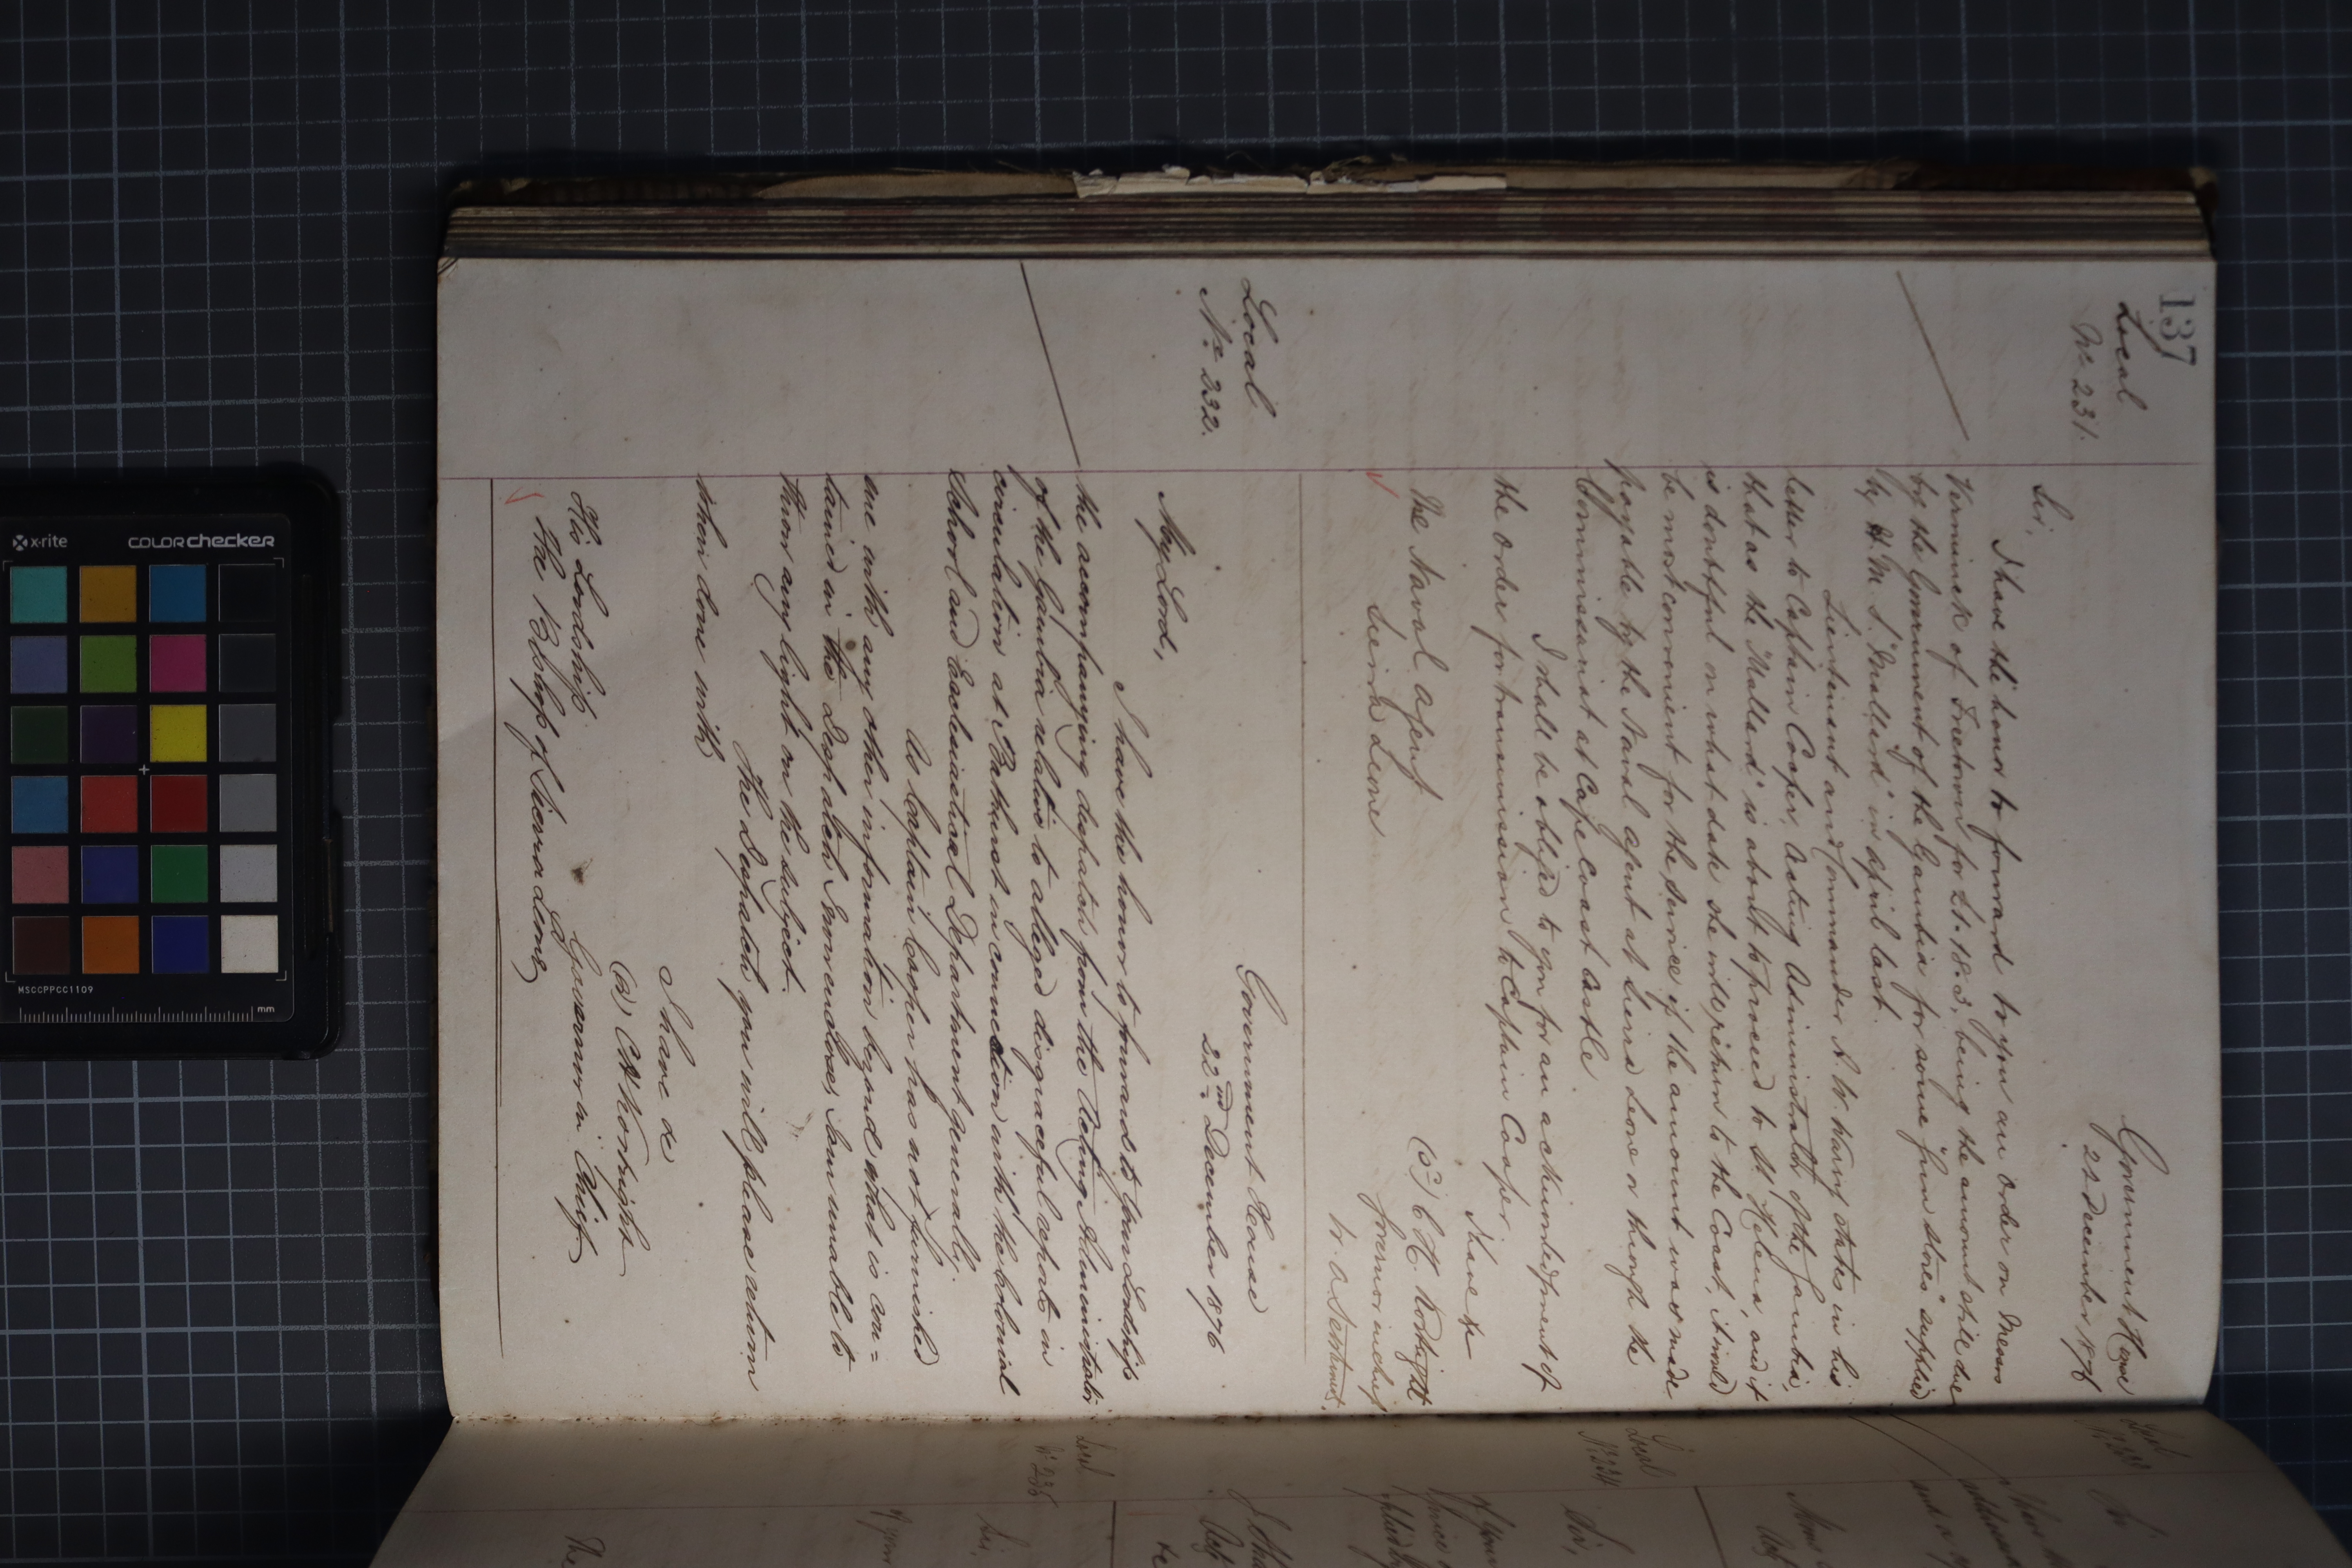 137
Local
No. 231.
Government House
22 December 1876
Sir,
I have the honor to forward to you an order on Messrs
Verminck of Freetown for £1.18.3, being the amount still due
by the Government of the Gambia for some "Gun stores" supplied
by H.M.S. "Mallard" in April last.
Lieutenant and Commander A. W. Warry states in his
letter to Captain Cooper, Acting Administrator of the Gambia,
that as the "Mallard" is about to proceed to St Helena, and it
is doubtful on what date she will return to the Coast, it would
be most convenient for the Service if the amount was made
payable by the Naval Agent at Sierra Leone or through the
Commissariat at Cape Coast Castle
I shall be obliged to you for an acknowledgment of
the order for transmission to Captain Cooper.
I have &c
(S) C H. Kortright
Governor in chief
W. A. Settlements.
The Naval Agent
Sierra Leone
Local
No. 232.
Government House
22nd December 1876
My Lord,
I have the honor to forward to Your Lordship
the accompanying despatch from the Acting Administrator
of the Gambia relative to alleged disgraceful reports in
circulation at Bathurst in connection with the Colonial
School and Ecclesiastical Department generally.
As Captain Cooper has not furnished
me with any other information beyond what is con=
tained in the Despatch I now enclose, I am unable to
throw any light on the subject.
The Despatch you will please return
when done with
I have &c
(S) C H Kortright
Governor in Chief
His Lordship
The Bishop of Sierra Leone
Local
No. 233
Sir
Local
No 234
Sir,
Local
No. 235
Sir.
The
x-rite
colorchecker
MSCCPPCC1109
mm